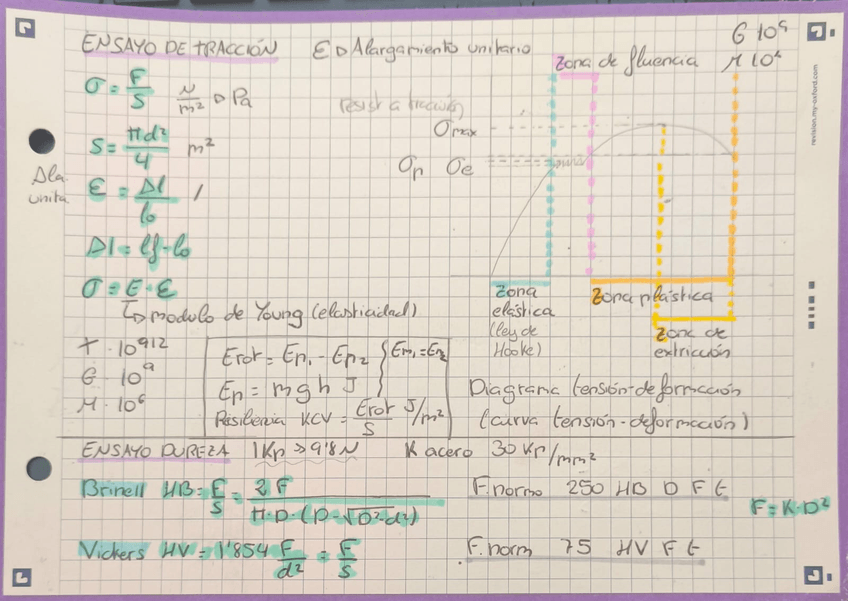 ENSAYO DE TRACCIÓN   Ɛ ▷ Alargamiento unitario
G 10⁹
M 10⁶
Zona de fluencia
σ = F/S   N/m² ▷ Pa
resist a tracción
σmax
S = πd²/4   m²
σp   σe
Δla
unita
Ɛ = Δl/l₀   /
Δl = lf - l₀
σ = E · Ɛ
↳ modulo de Young (elasticidad)
Zona
elástica
(ley de
Hooke)
Zona plástica
Zona de
extricción
T · 10⁹¹²
G · 10⁹
M · 10⁶
Erot = Ep₁ - Ep₂ { Em₁ = Em₂
Ep = m g h   J
Resiliencia KCV = Erot/S   J/m²
Diagrama tensión-deformación
(curva tensión-deformación)
ENSAYO DUREZA   1Kp → 9'8 N   K acero   30 Kp/mm²
Brinell   HB = F/S = 2F/(π·D·(D-√D²-d²))   F.norma   250   HB   D   F   t
F = K·D²
Vickers   HV = 1'854 F/d² = F/S   F.norm   75   HV   F   t
revision.my-oxford.com